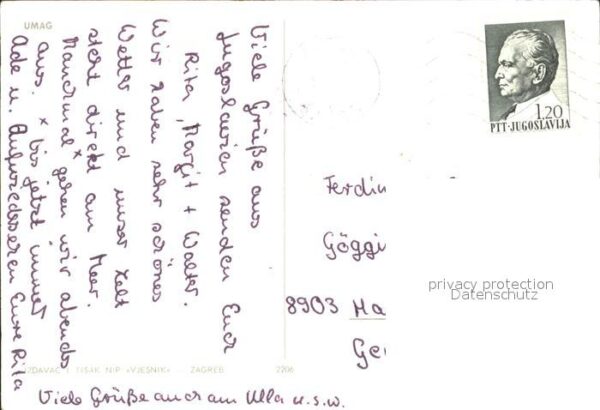 UMAG
Viele Grüße aus
Jugoslawien senden Euch
Rita, Margit + Walter.
Wir haben sehr schönes
Wetter und unser Zelt
steht direkt am Meer.
Manchmal x gehen wir abends
aus. x bis jetzt immer
Ade u. Aufwiedersehen Eure Rita
Viele Grüße auch an Ulla u.s.w.
1.20
PTT·JUGOSLAVIJA
Ferdin
Göggi
8903 Ha
Ge
privacy protection
Datenschutz
IZDAVAČ I TISAK NIP »VJESNIK« - ZAGREB 2206